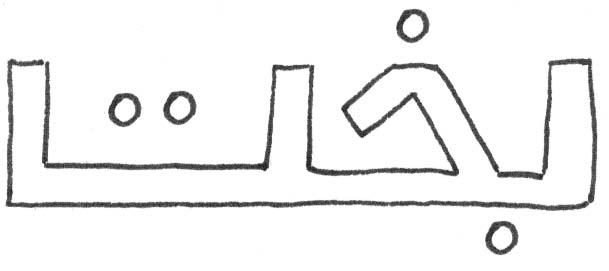 بخت